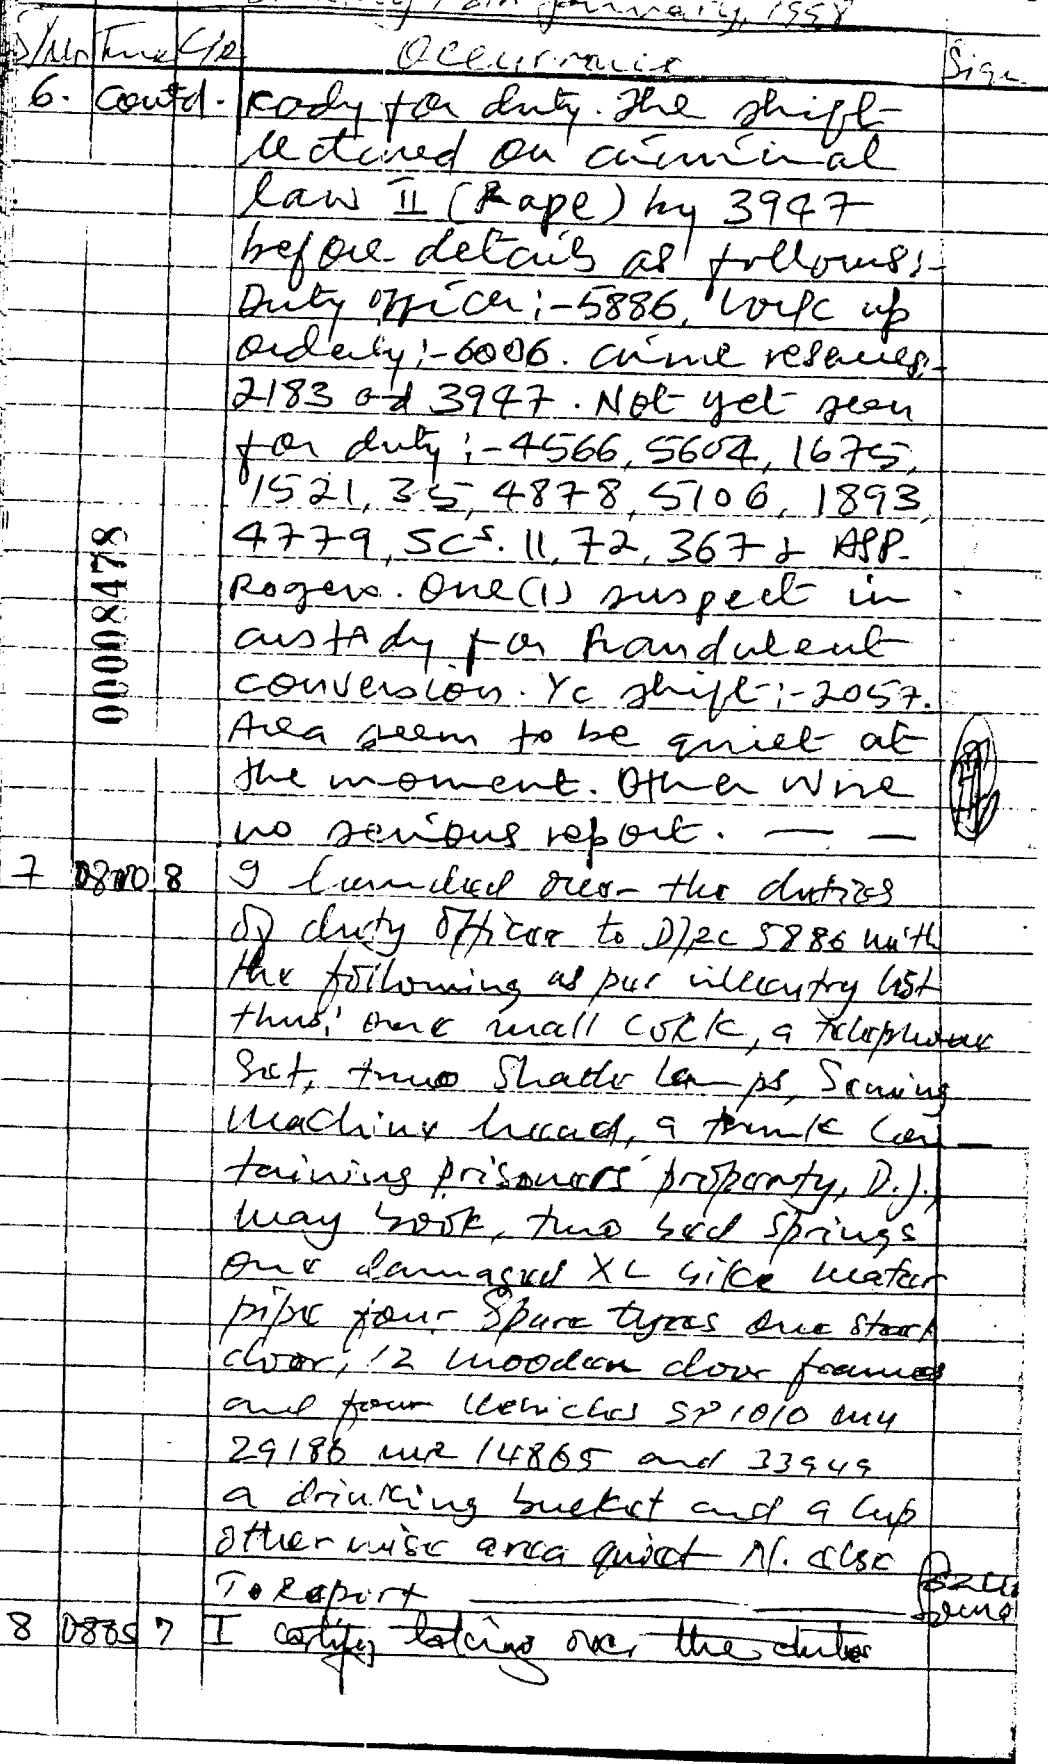 January, 1998
S/No Time C/R Occurrence Sign
6. Contd. ready for duty. The shift
lectured on criminal
law II (Rape) by 3947
before details as follows:-
Duty officer:-5886, Lock up
orderly:-6006. Crime reserves:-
2183 and 3947. Not yet seen
for duty:-4566, 5604, 1675,
1521, 35, 4878, 5106, 1893,
4779, SCs. 11, 72, 367 & ASP.
Rogers. One (1) suspect in
custody for fraudulent
conversion. Yc shift:-2057.
Area seem to be quiet at
the moment. Other wise
no serious report.
00008478
7 0800 8 I handed over the duties
of duty officer to D/PC 5886 with
the following as per inventry list
thus: one wall Cork, a telephone
Set, two Shade lamps, Sewing
Machine head, a trunk Con-
taining prisoners' property, D.J.,
way book, two bed springs
one damaged XL bike water
pipe four Spare tyres one steel
door, 12 wooden door frames
and four Vehicles SP 1010
29186 14865 and 33949
a drinking bucket and a Cup
other wise area quiet N. else
To Report
8 0805 7 I certify taking over the duties